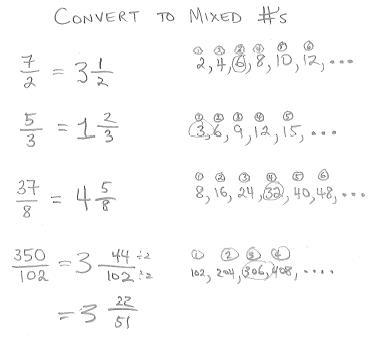 CONVERT TO MIXED #'s
7/2 = 3 1/2
① ② ③ ④ ⑤ ⑥
2, 4, 6, 8, 10, 12, ...
5/3 = 1 2/3
① ② ③ ④ ⑤
3, 6, 9, 12, 15, ...
37/8 = 4 5/8
① ② ③ ④ ⑤ ⑥
8, 16, 24, 32, 40, 48, ...
350/102 = 3 44/102 ÷2 ÷2
① ② ③ ④
102, 204, 306, 408, ....
= 3 22/51